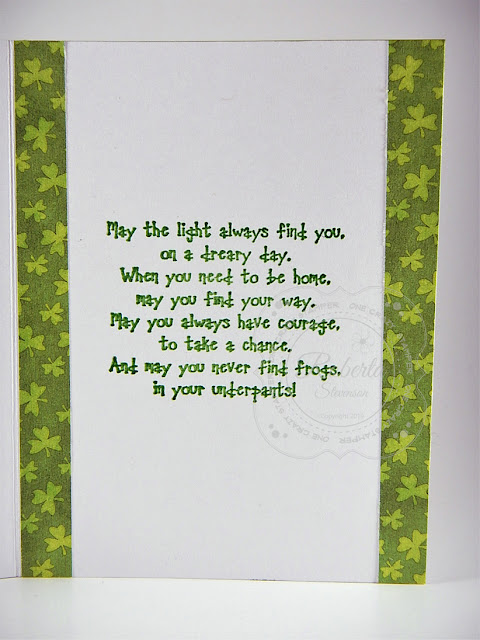 May the light always find you,
on a dreary day.
When you need to be home,
may you find your way.
May you always have courage,
to take a chance.
And may you never find frogs,
in your underpants!
Roberta
Stevenson
ONE CRAZY STAMPER